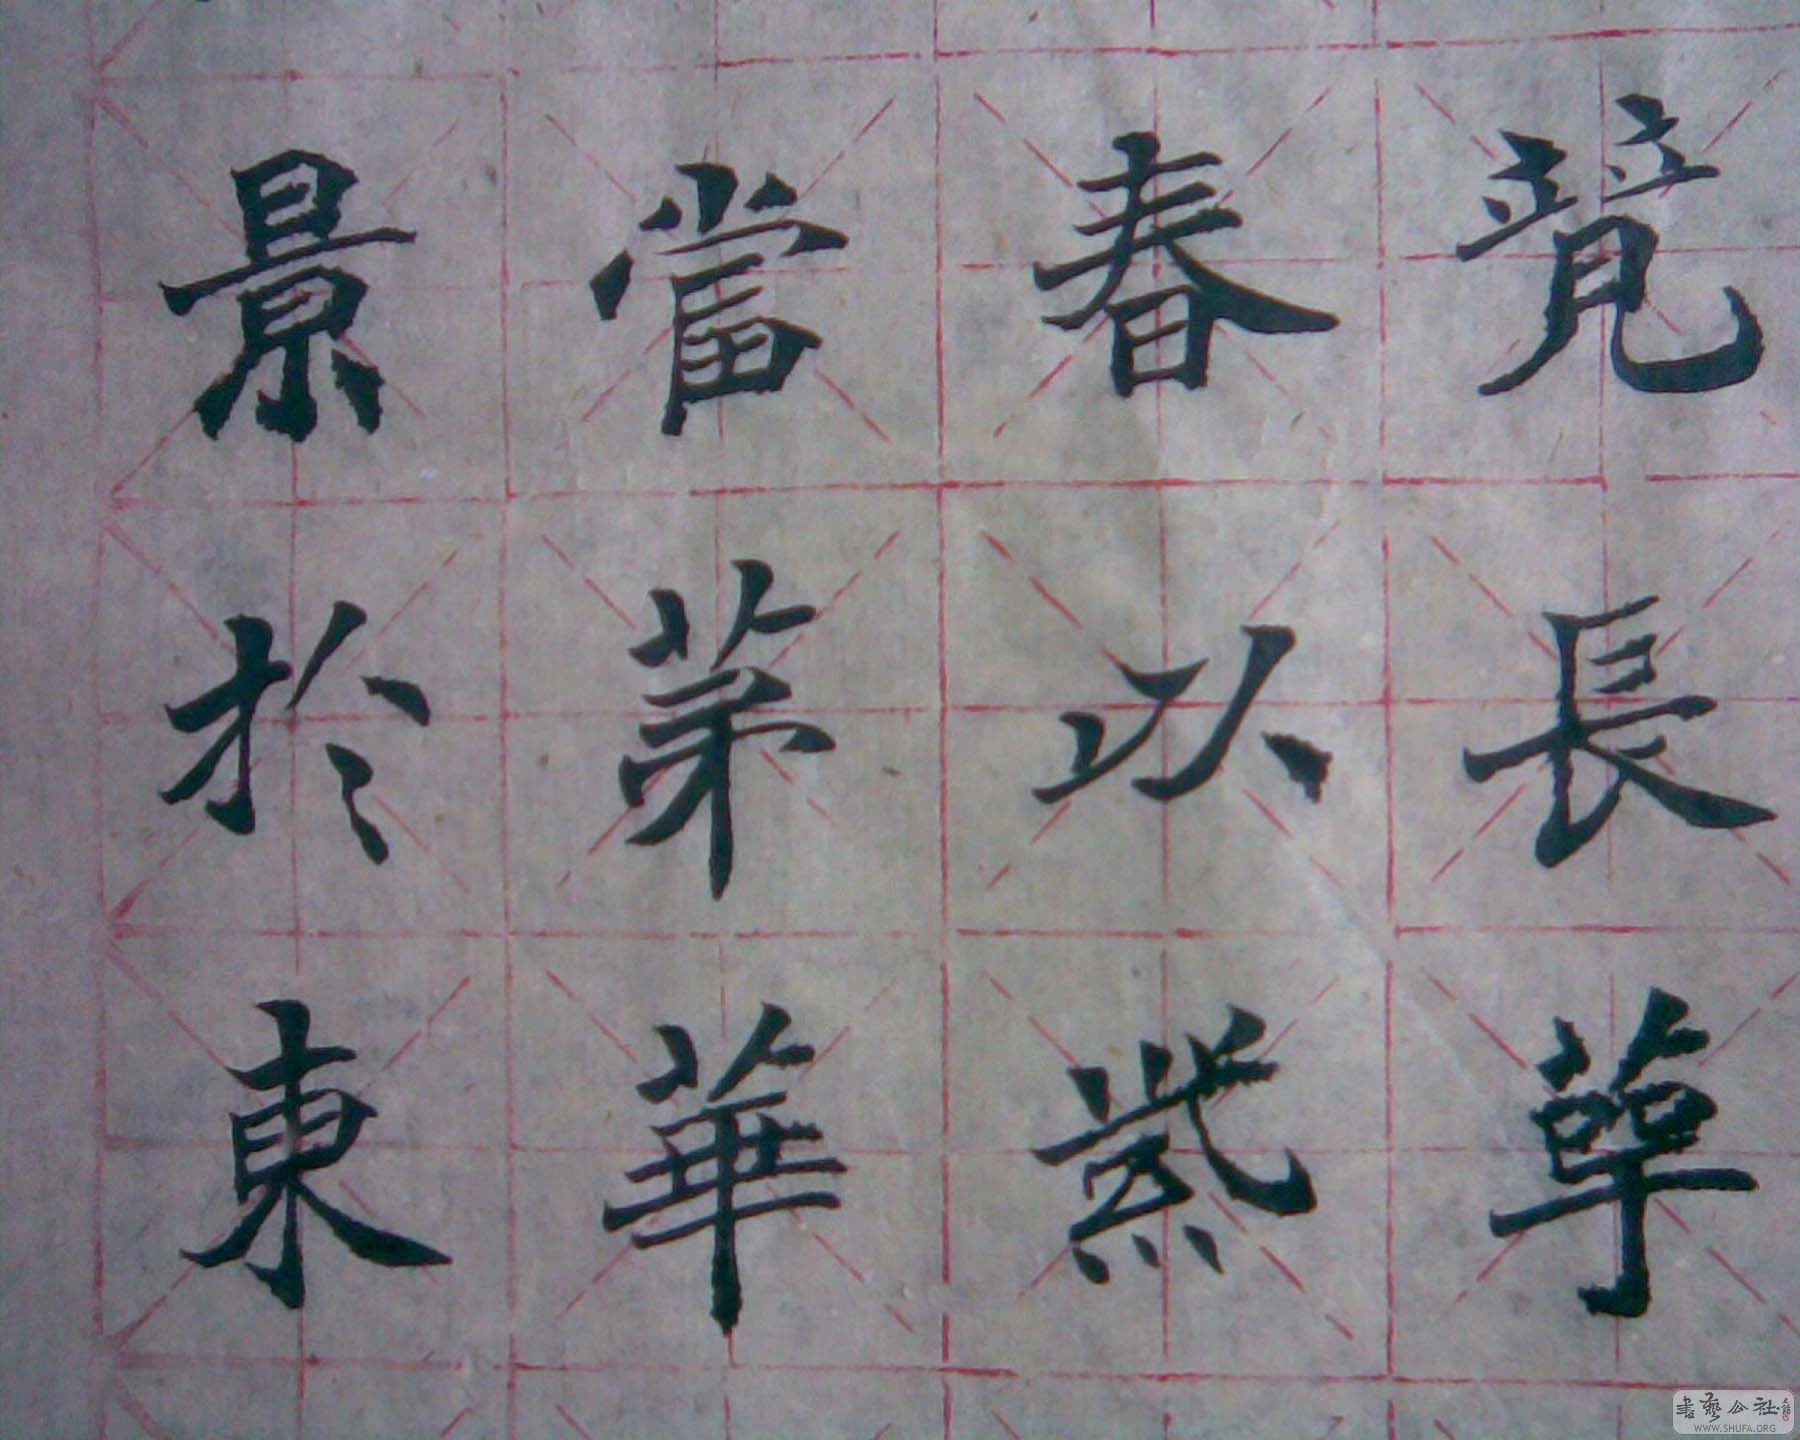 竸長草
春以紫
當茅華
景於東
書藝公社
WWW.SHUFA.ORG